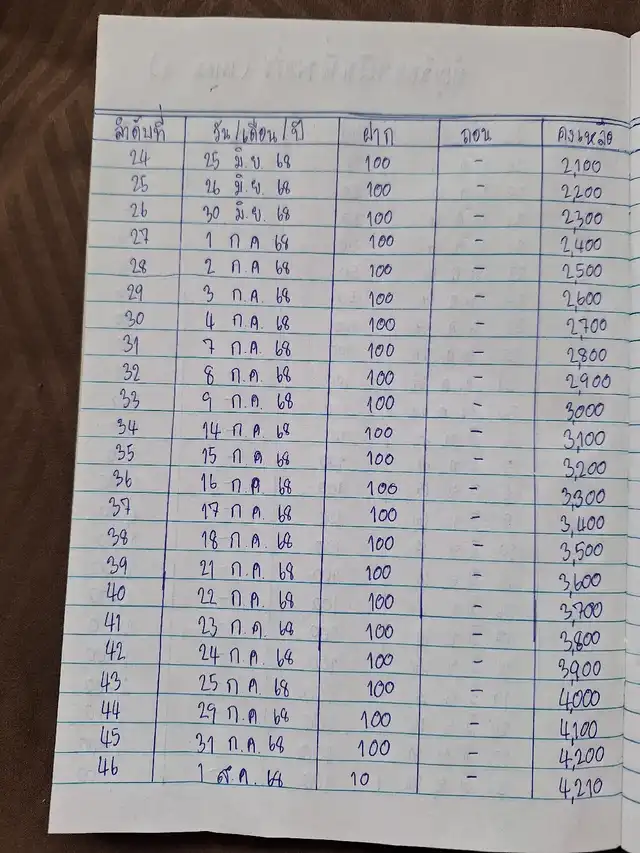 ลำดับที่ วัน/เดือน/ปี ฝาก ถอน คงเหลือ
24 25 มิ.ย. 68 100 - 2,100
25 26 มิ.ย. 68 100 - 2,200
26 30 มิ.ย. 68 100 - 2,300
27 1 ก ค 68 100 - 2,400
28 2 ก.ค 68 100 - 2,500
29 3 ก.ค. 68 100 - 2,600
30 4 ก.ค. 68 100 - 2,700
31 7 ก.ค. 68 100 - 2,800
32 8 ก.ค. 68 100 - 2,900
33 9 ก.ค. 68 100 - 3,000
34 14 ก.ค. 68 100 - 3,100
35 15 ก.ค 68 100 - 3,200
36 16 ก.ค. 68 100 - 3,300
37 17 ก.ค. 68 100 - 3,400
38 18 ก.ค. 68 100 - 3,500
39 21 ก.ค. 68 100 - 3,600
40 22 ก.ค. 68 100 - 3,700
41 23 ก.ค. 68 100 - 3,800
42 24 ก.ค. 68 100 - 3,900
43 25 ก ค. 68 100 - 4,000
44 29 ก.ค 68 100 - 4,100
45 31 ก.ค. 68 100 - 4,200
46 1 ส.ค. 68 10 - 4,210